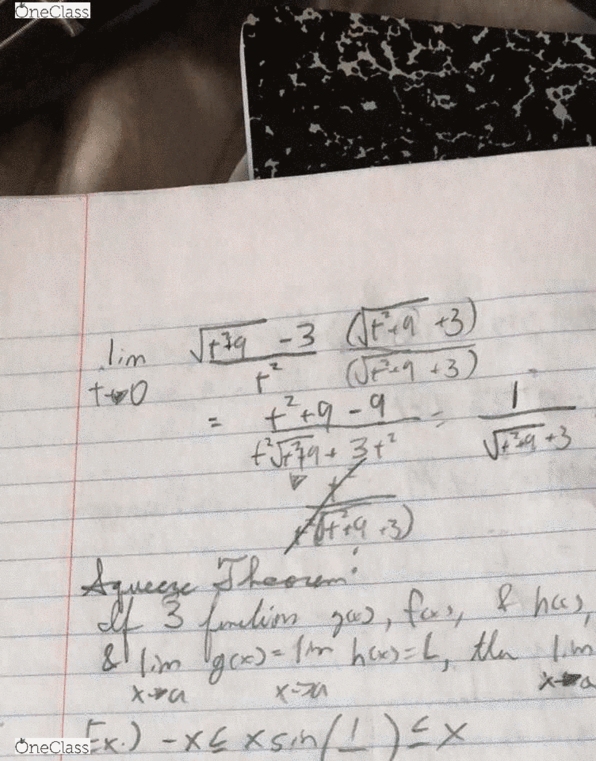 OneClass
lim t→0 √(t²+9) - 3 / t² (√(t²+9) + 3) / (√(t²+9) + 3)
= t² + 9 - 9 / t²√(t²+9) + 3t² = 1 / √(t²+9) + 3
Squeeze Theorem:
If 3 function g(x), f(x), & h(x),
& lim x→a g(x) = lim x→a h(x) = L, then lim x→a
OneClass Ex.) -x ≤ x sin(1 ) ≤ x